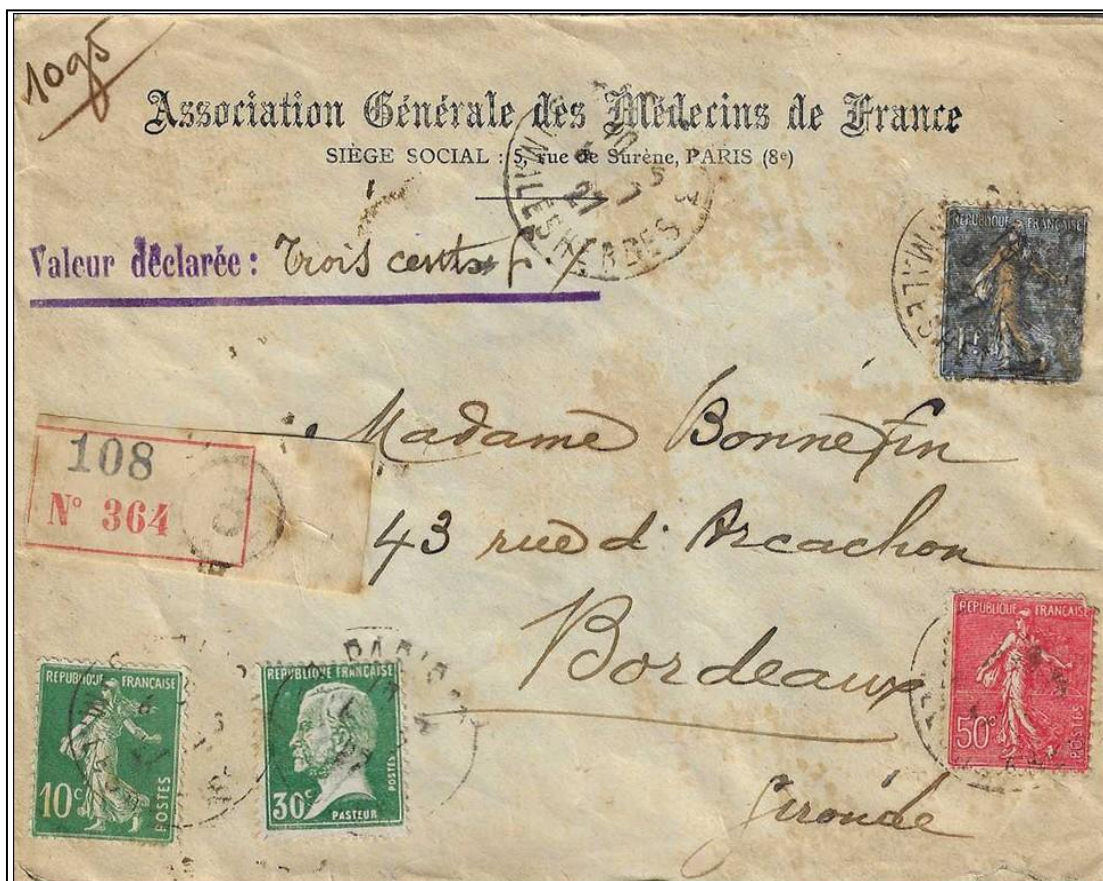 10g5
Association Générale des Médecins de France
SIÈGE SOCIAL : 5, rue de Surène, PARIS (8e)
Valeur déclarée : Trois cents f
RÉPUBLIQUE FRANÇAISE
1F
Madame Bonnefin
108
N° 364
43 rue d'Arcachon
Bordeaux
Gironde
RÉPUBLIQUE FRANÇAISE
50c
POSTES
PARIS
RÉPUBLIQUE FRANÇAISE
10c
POSTES
RÉPUBLIQUE FRANÇAISE
30c
PASTEUR